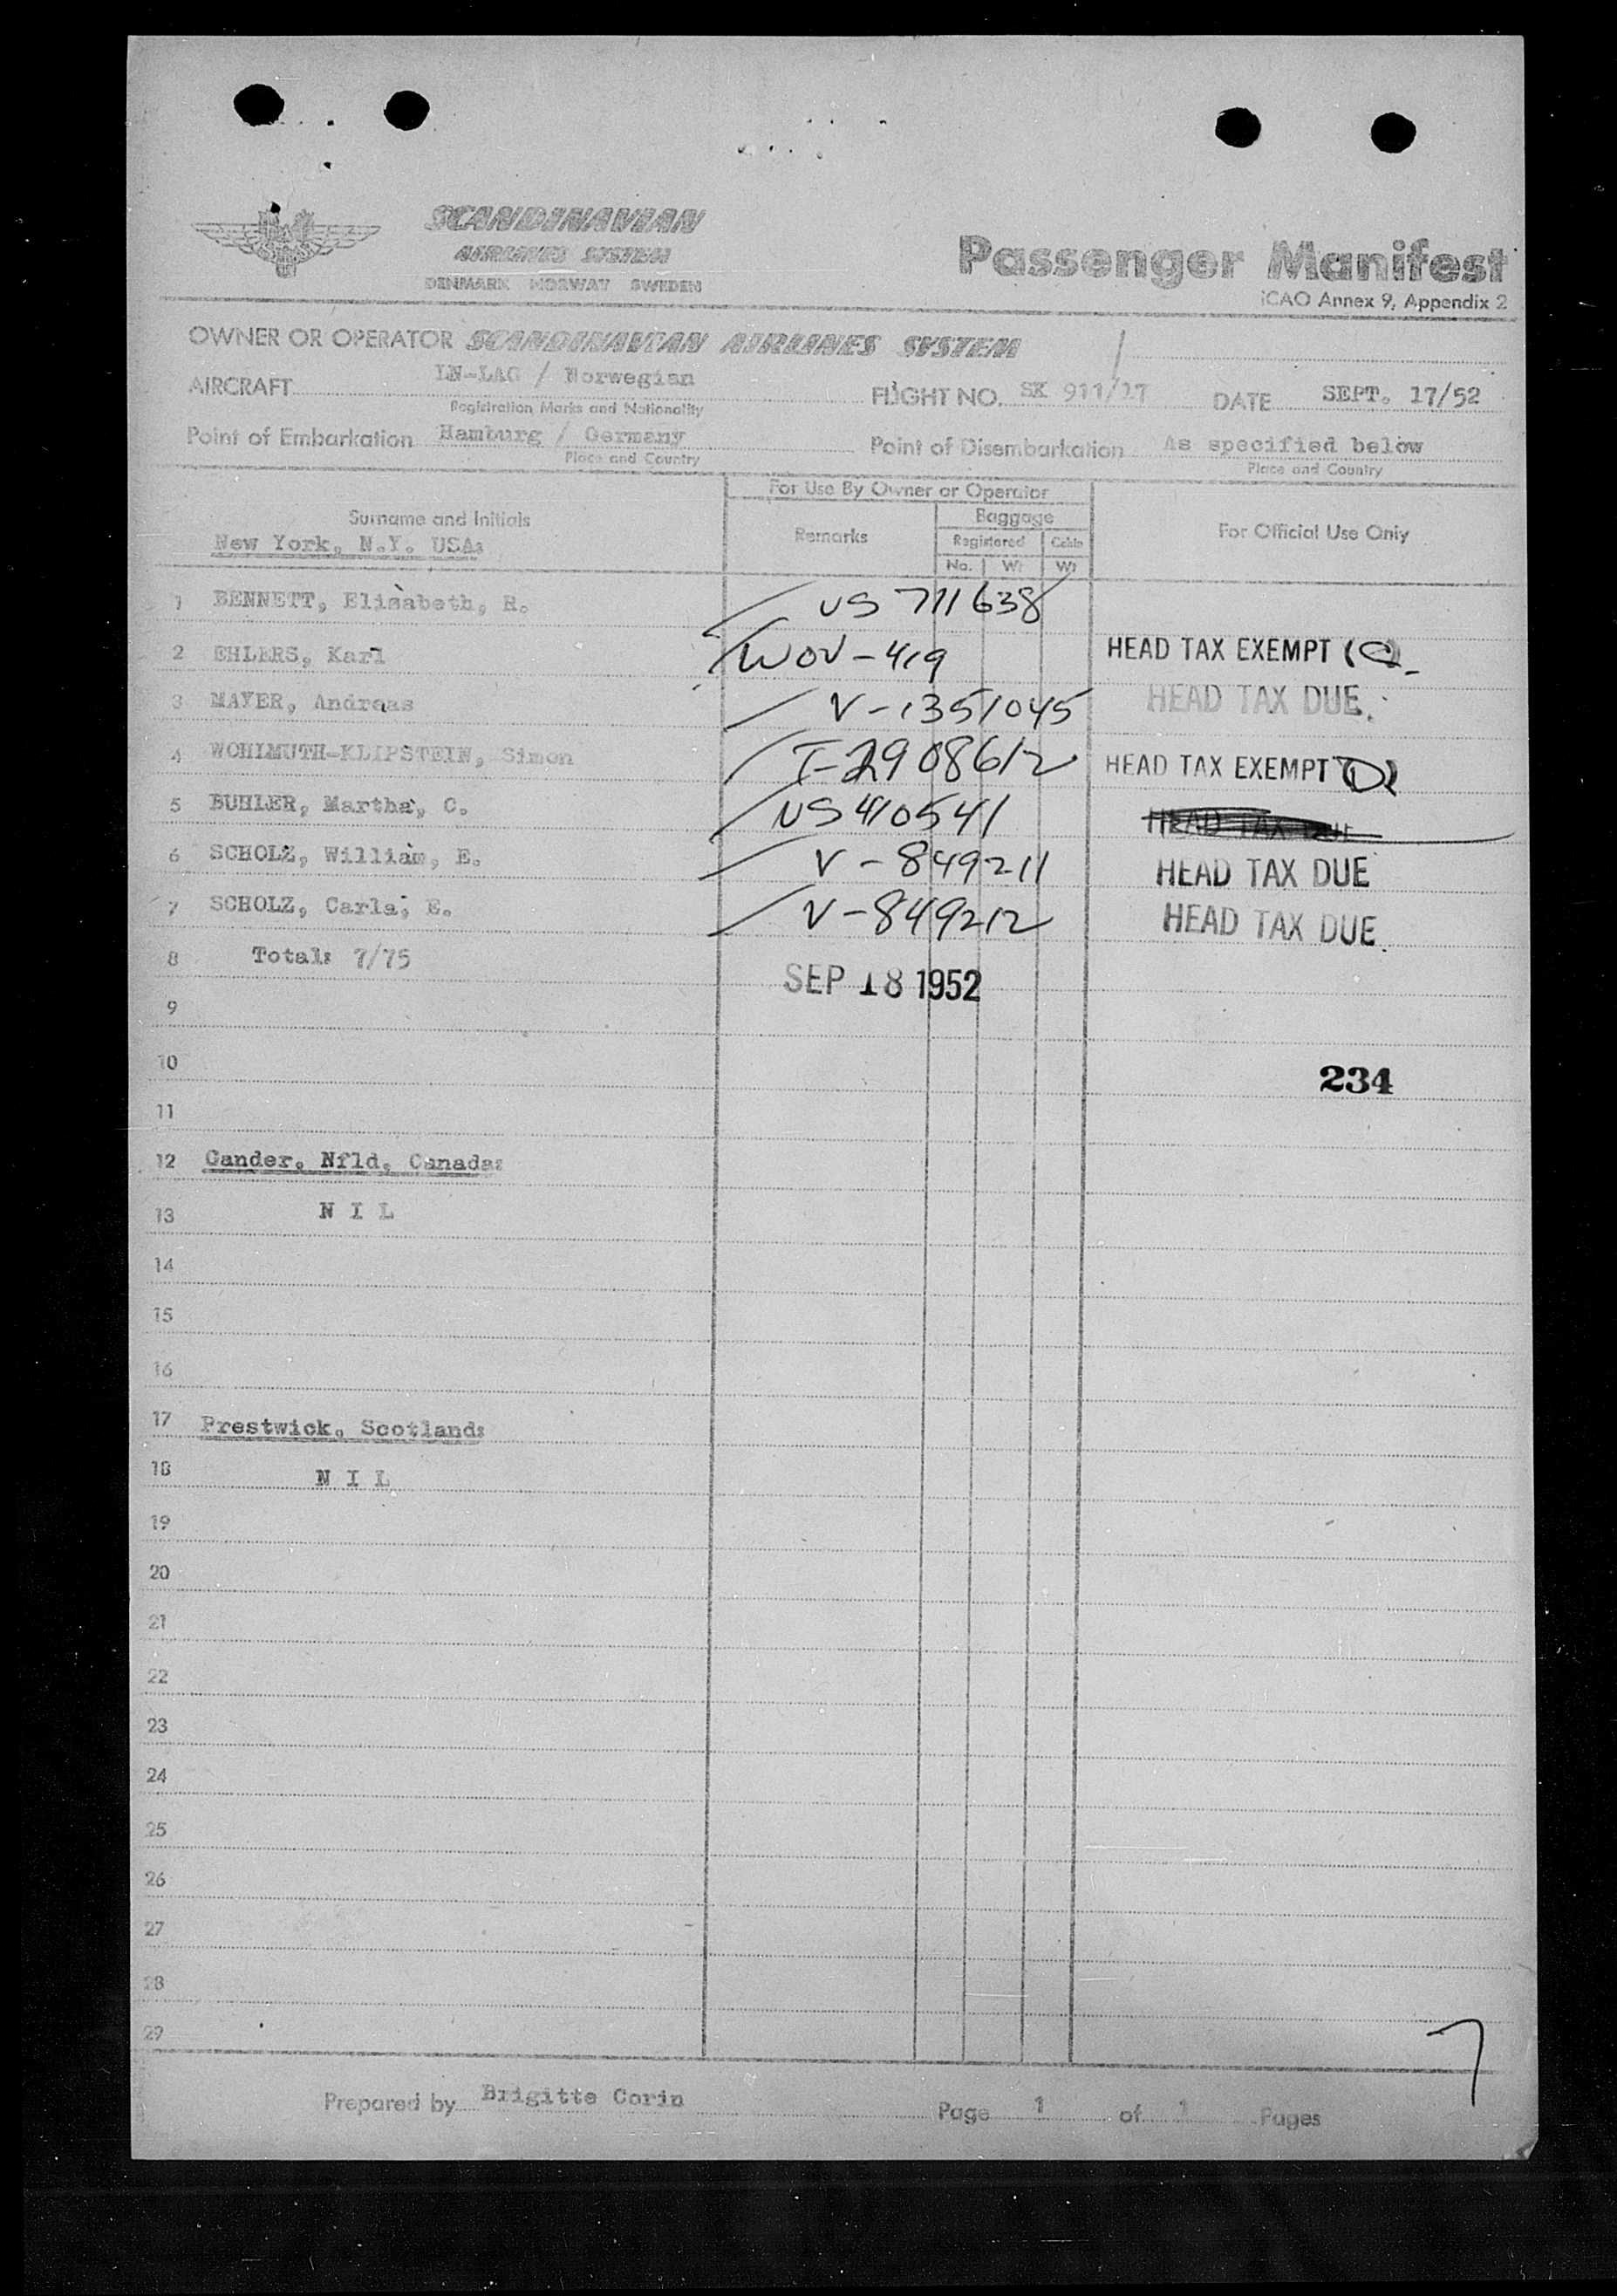 SCANDINAVIAN
AIRLINES SYSTEM
DENMARK NORWAY SWEDEN
Passenger Manifest
ICAO Annex 9, Appendix 2
OWNER OR OPERATOR SCANDINAVIAN AIRLINES SYSTEM
AIRCRAFT LN-LAG / Norwegian FLIGHT NO. SK 911/17 DATE SEPT. 17/52
Registration Marks and Nationality
Point of Embarkation Hamburg / Germany Point of Disembarkation As specified below
Place and Country Place and Country
For Use By Owner or Operator
Surname and Initials Remarks Baggage For Official Use Only
Registered Cabin
New York, N.Y. USA:
No. Wt Wt
1 BENNETT, Elisabeth, R. US 711638
2 EHLERS, Karl WOV-419 HEAD TAX EXEMPT (C)
3 MAYER, Andreas V-1351045 HEAD TAX DUE
4 WOHLMUTH-KLIPSTEIN, Simon T-2908612 HEAD TAX EXEMPT (D)
5 BUHLER, Martha, C. US 410541 HEAD TAX DUE
6 SCHOLZ, William, E. V-849211 HEAD TAX DUE
7 SCHOLZ, Carla, E. V-849212 HEAD TAX DUE
8 Total: 7/75
SEP 18 1952
9
10 234
11
12 Gander, Nfld, Canada:
13 N I L
14
15
16
17 Prestwick, Scotland:
18 N I L
19
20
21
22
23
24
25
26
27
28
29
7
Prepared by Brigitte Corin Page 1 of 1 Pages